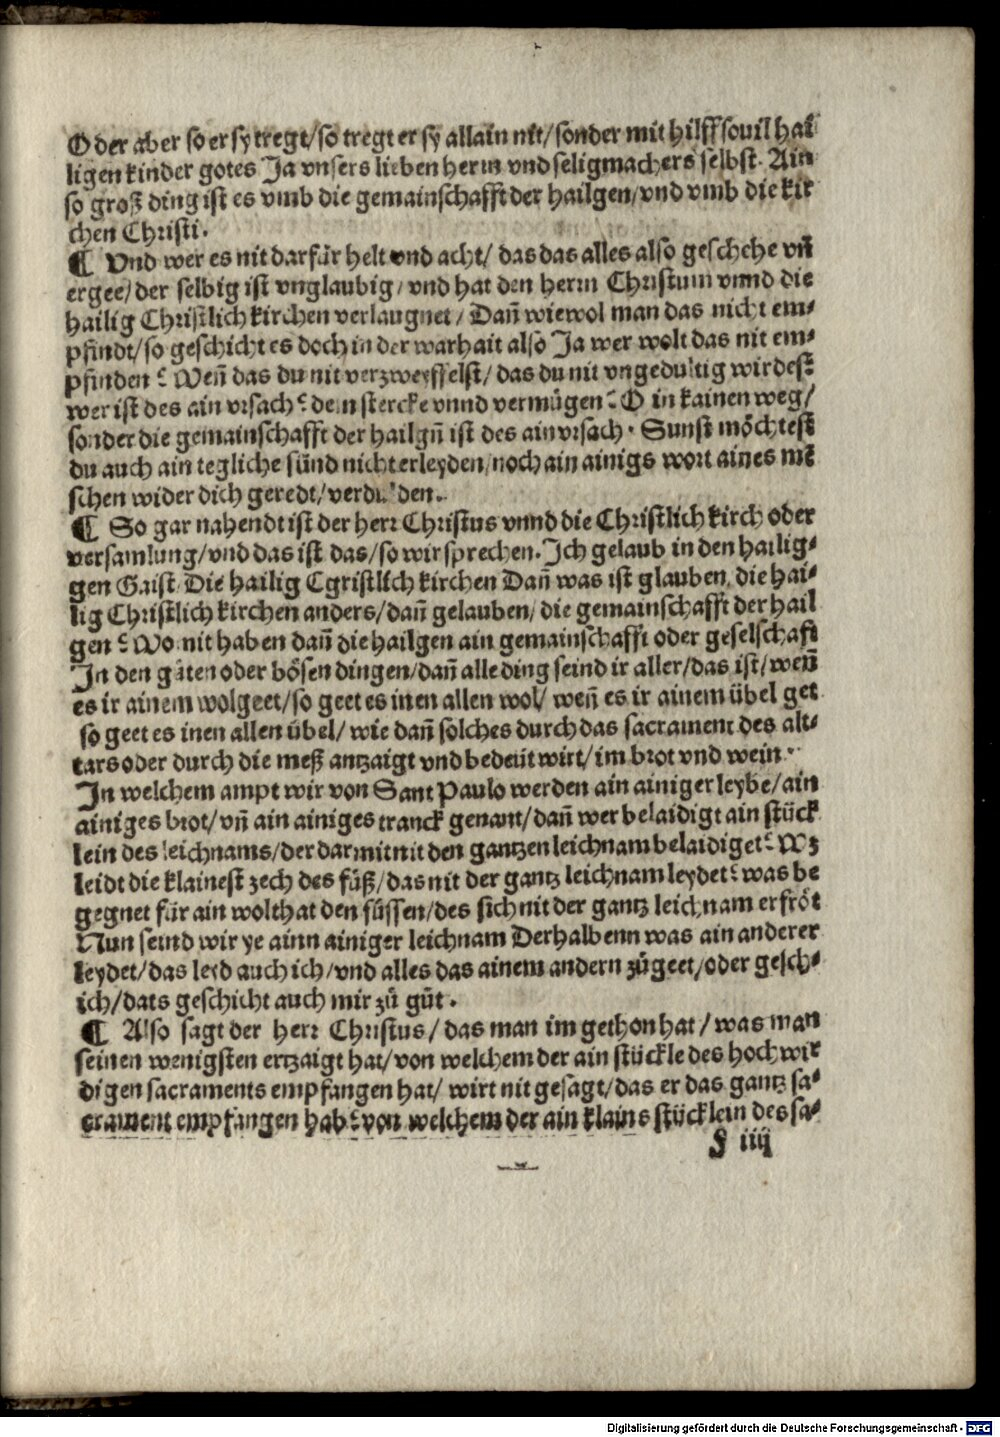 Oder aber so er sy tregt/so tregt er sy allain nit/sonder mit hilff souil hai
ligen kinder gotes Ja vnsers lieben herrn vnd seligmachers selbst. Ain
so groß ding ist es vmb die gemainschafft der hailgen/vnd vmb die kir
chen Christi.
¶ Vnd wer es nit darfür helt vnd acht/ das das alles also geschehe vñ
ergee/der selbig ist vnglaubig/vnd hat den herrn Christum vnnd die
hailig Christlich kirchen verlaugnet/ Dañ wiewol man das nicht em⸗
pfindt/so geschicht es doch in der warhait also Ja wer wolt das nit em⸗
pfinden? Weñ das du nit verzweyffelst/das du nit vngedultig wirdest
wer ist des ain vrsach? dein stercke vnnd vermügen? O in kainen weg/
sonder die gemainschafft der hailgñ ist des ain vrsach. Sunst möchtest
du auch ain tegliche sünd nicht erleyden/noch ain ainigs wort aines mẽ
schen wider dich geredt/verdulden.
¶ So gar nahendt ist der herr Christus vnnd die Christlich kirch oder
versamlung/vnd das ist das/so wir sprechen. Ich gelaub in den hailig⸗
gen Gaist. Die hailig Cgristlich kirchen Dañ was ist glauben, die hai⸗
lig Christlich kirchen anders/dañ gelauben/die gemainschafft der hail
gen? Wo mit haben dañ die hailgen ain gemainschafft oder geselschafft
In den gůten oder bösen dingen/dañ alle ding seind ir aller/das ist/weñ
es ir ainem wolgeet/so geet es inen allen wol/ weñ es ir ainem übel get
so geet es inen allen übel/ wie dañ solches durch das sacrament des alt⸗
tars oder durch die meß antzaigt vnd bedeüt wirt/im brot vnd wein.
In welchem ampt wir von Sant Paulo werden ain ainiger leybe/ain
ainiges brot/vñ ain ainiges tranck genant/dañ wer belaidigt ain stück
lein des leichnams/der darmit nit den gantzen leichnam belaidiget? Wz
leidt die klainest zech des füß/das nit der gantz leichnam leydet? was be
gegnet für ain wolthat den füssen/des sich nit der gantz leichnam erfröt
Nun seind wir ye ainn ainiger leichnam Derhalbenn was ain anderer
leydet/das leyd auch ich/vnd alles das ainem andern zůgeet/oder gesch⸗
ich/dats geschicht auch mir zů gůt.
¶ Also sagt der herr Christus/das man im gethon hat/was man
seinen wenigsten ertzaigt hat/von welchem der ain stückle des hochwir
digen sacraments empfangen hat/ wirt nit gesagt/das er das gantz sa⸗
crament empfangen hab? von welchem der ain klains stücklein des sa⸗
F iiij
Digitalisierung gefördert durch die Deutsche Forschungsgemeinschaft - DFG